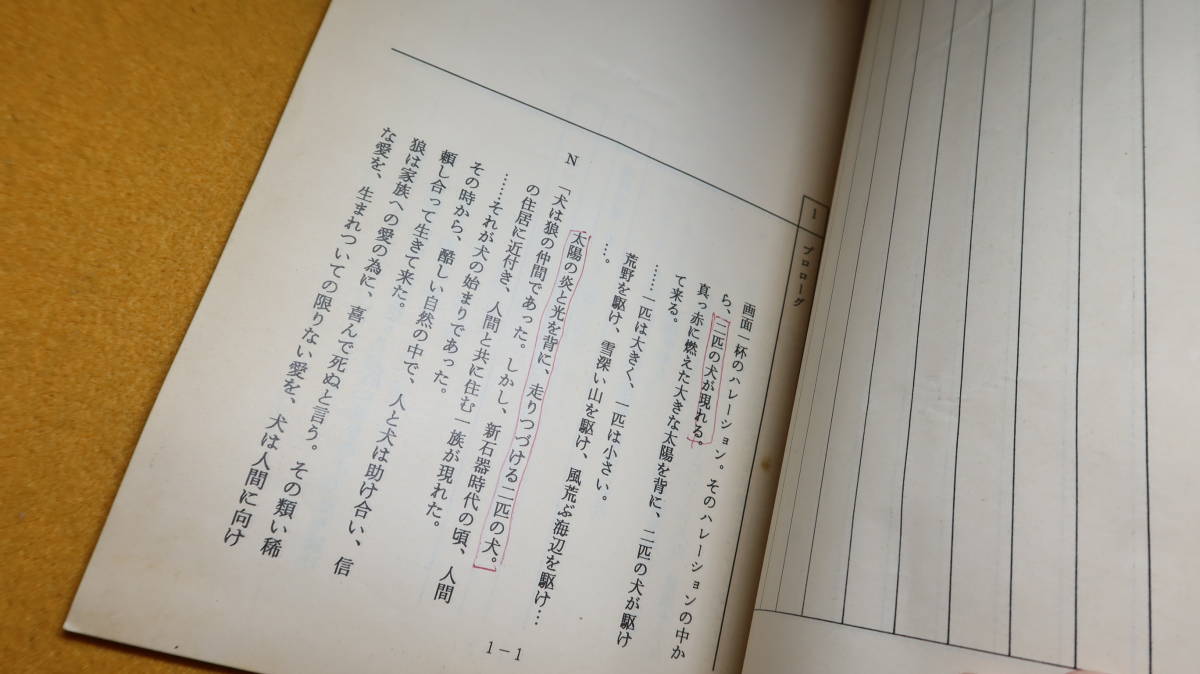 1
プロローグ
画面一杯のハレーション。そのハレーションの中か
ら、二匹の犬が現れる。
真っ赤に燃えた大きな太陽を背に、二匹の犬が駆け
て来る。
……一匹は大きく、一匹は小さい。
荒野を駆け、雪深い山を駆け、風荒ぶ海辺を駆け…
…。
太陽の炎と光を背に、走りつづける二匹の犬。
N 「犬は狼の仲間であった。しかし、新石器時代の頃、人間
の住居に近付き、人間と共に住む一族が現れた。
……それが犬の始まりであった。
その時から、酷しい自然の中で、人と犬は助け合い、信
頼し合って生きて来た。
狼は家族への愛の為に、喜んで死ぬと言う。その類い稀
な愛を、生まれついての限りない愛を、犬は人間に向け
1-1